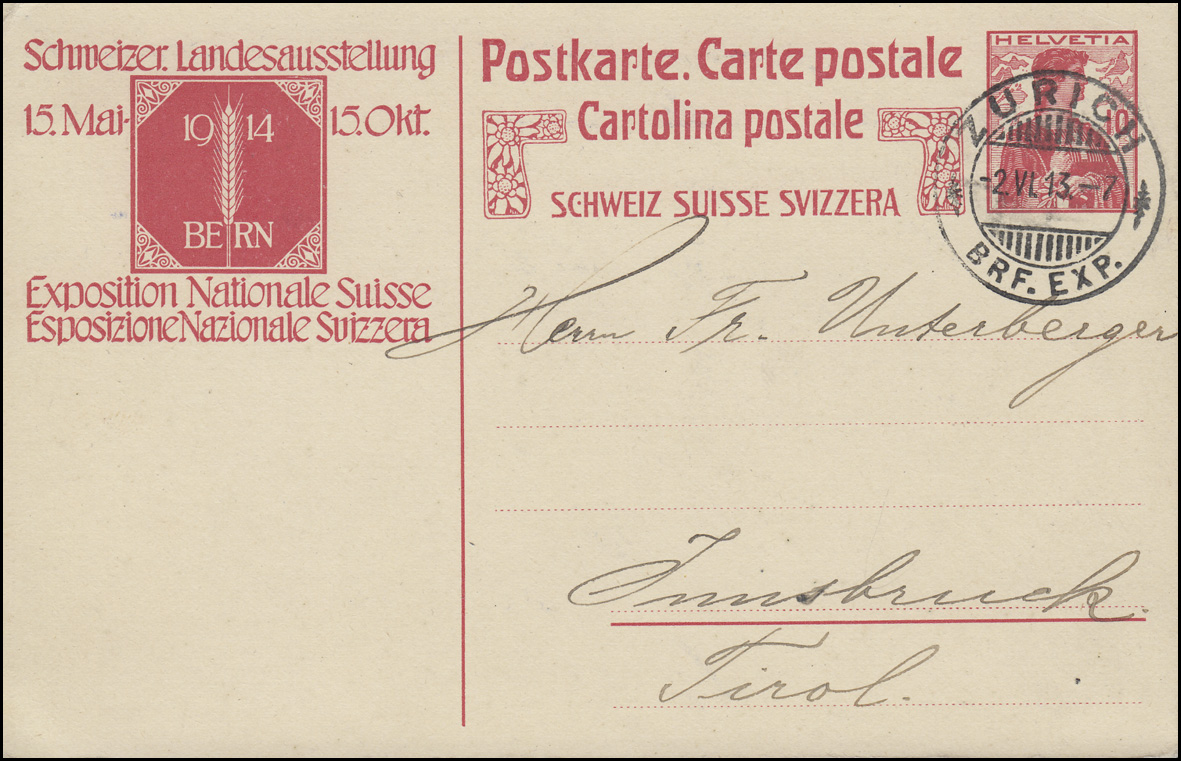 Schweizer. Landesausstellung
15. Mai- 15. Okt.
19 14
BERN
Exposition Nationale Suisse
Esposizione Nazionale Svizzera
Postkarte. Carte postale
Cartolina postale
SCHWEIZ SUISSE SVIZZERA
HELVETIA
10
ZÜRICH
-2.VI.13.-7
BRF. EXP.
Herrn Fr. Unterberger
Innsbruck.
Tirol.